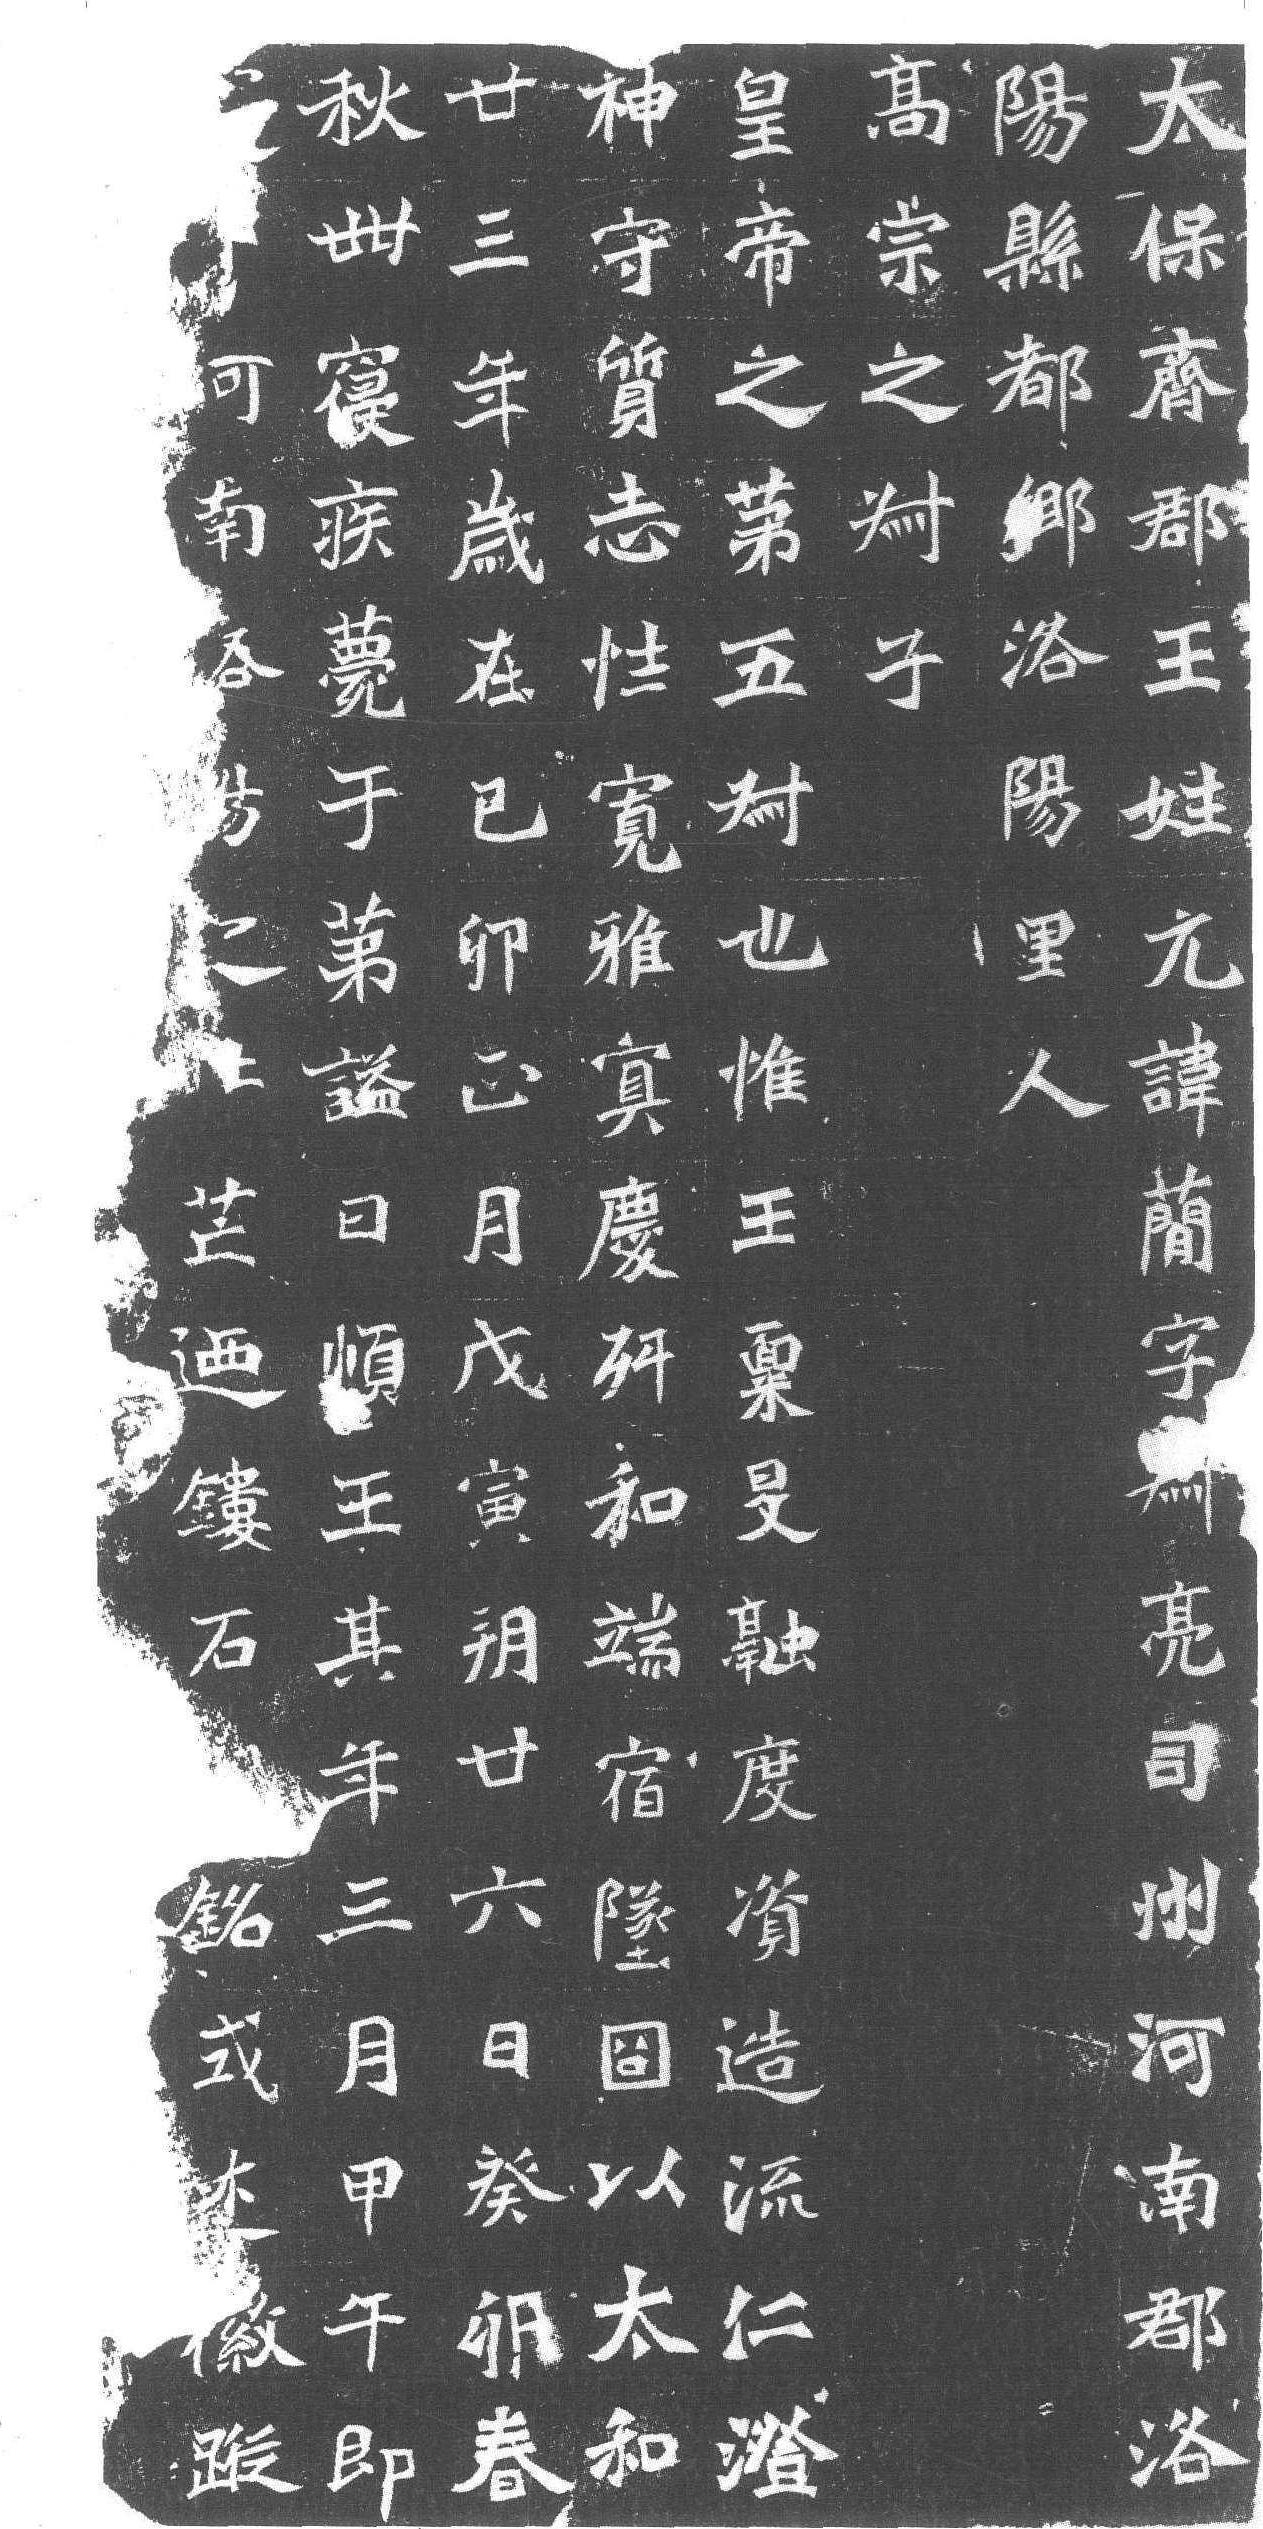 太保齊郡王姓元諱蕳字㓝亮司州河南郡洛
陽縣都鄉洛陽里人
高宗之㓝子
皇帝之苐五㓝也惟王稟旻融度資造流仁澄
神守質志性寬雅寘慶舛和端宿墜因以太和
廿三年歲在己卯正月戊寅朔廿六日癸卯春
秋卌寑疾薨于苐謚曰順王其年三月甲午即
可南洛陽之芒迺鏤石銘式述徽蹤